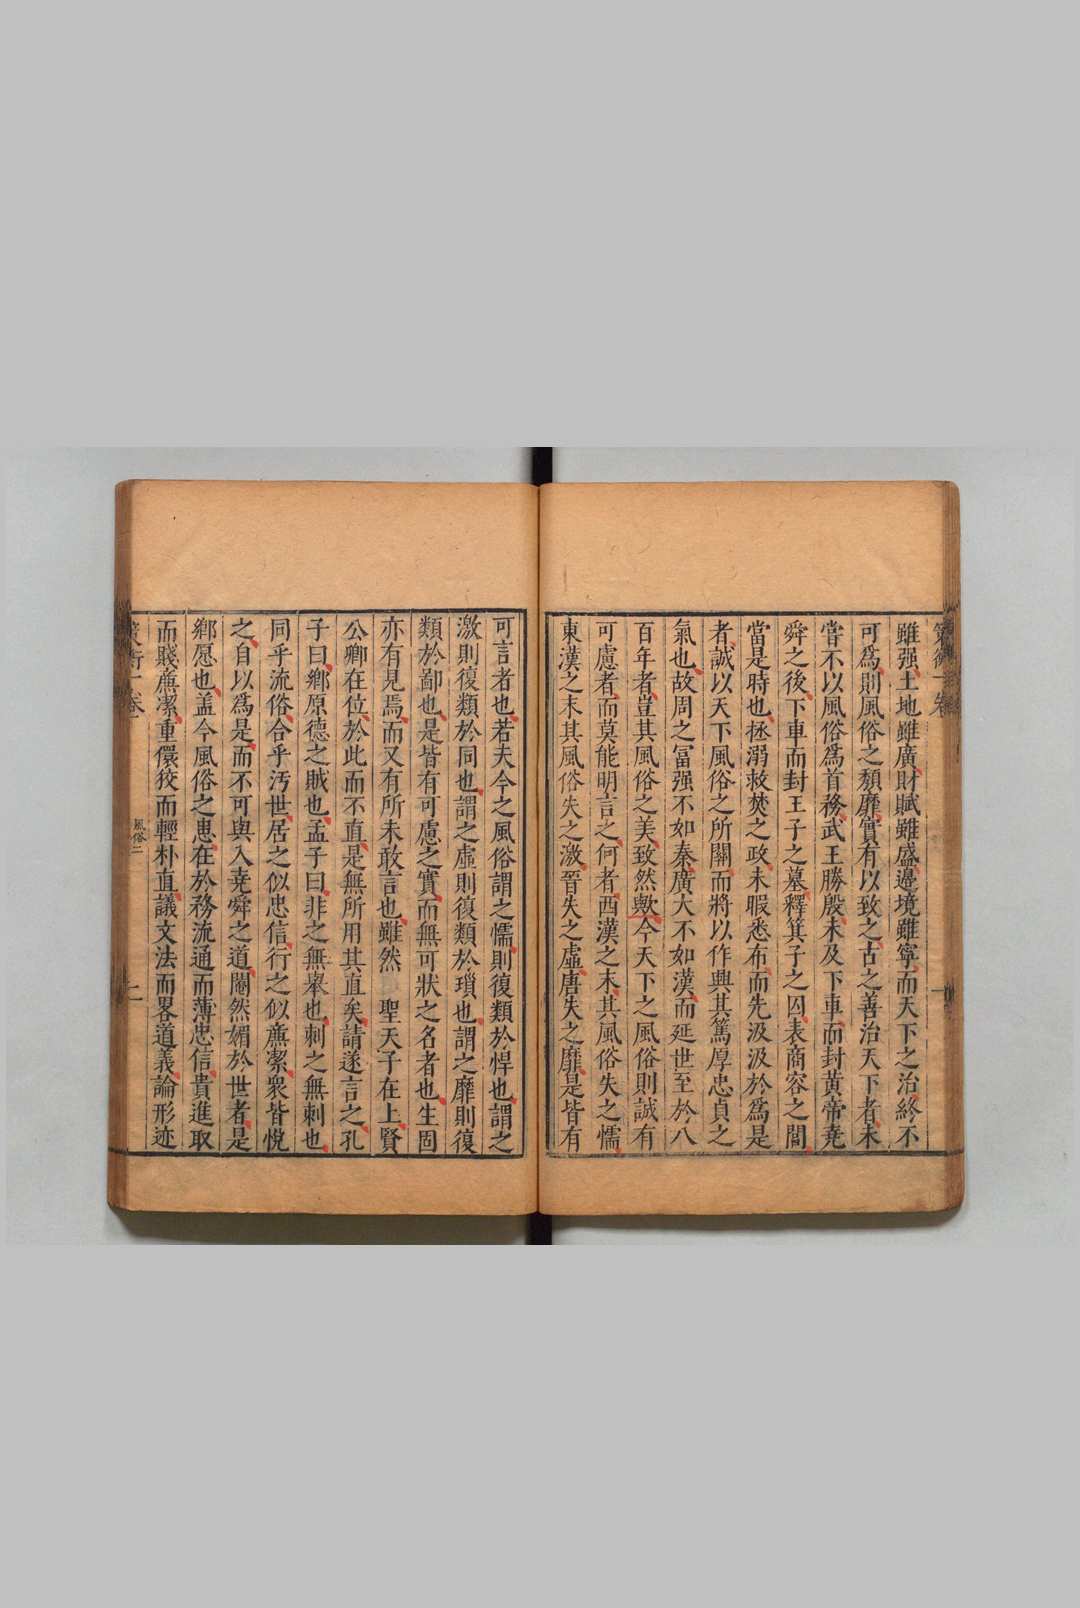 雖强土地雖廣財賦雖盛邊境雖寧而天下之治終不
可爲則風俗之頽靡實有以致之古之善治天下者未
嘗不以風俗爲首務武王勝殷未及下車而封黃帝堯
舜之後下車而封王子之墓釋箕子之囚表商容之閭
當是時也拯溺救焚之政未暇悉布而先汲汲於爲是
者誠以天下風俗之所關而將以作興其篤厚忠貞之
氣也故周之冨强不如秦廣大不如漢而延世至於八
百年者豈其風俗之美致然歟今天下之風俗則誠有
可慮者而莫能明言之何者西漢之末其風俗失之懦
東漢之末其風俗失之激晉失之虛唐失之靡是皆有
可言者也若夫今之風俗謂之懦則復類於悍也謂之
激則復類於同也謂之虛則復類於瑣也謂之靡則復
類於鄙也是皆有可慮之實而無可狀之名者也生固
亦有見焉而又有所未敢言也雖然 聖天子在上賢
公卿在位於此而不直是無所用其直矣請遂言之孔
子曰鄉原德之賊也孟子曰非之無舉也刺之無刺也
同乎流俗合乎汚世居之似忠信行之似廉潔衆皆悅
之自以爲是而不可與入堯舜之道閹然媚於世者是
鄉愿也盖今風俗之患在於務流通而薄忠信貴進取
而賤廉潔重儇狡而輕朴直議文法而畧道義論形迹
風俗二